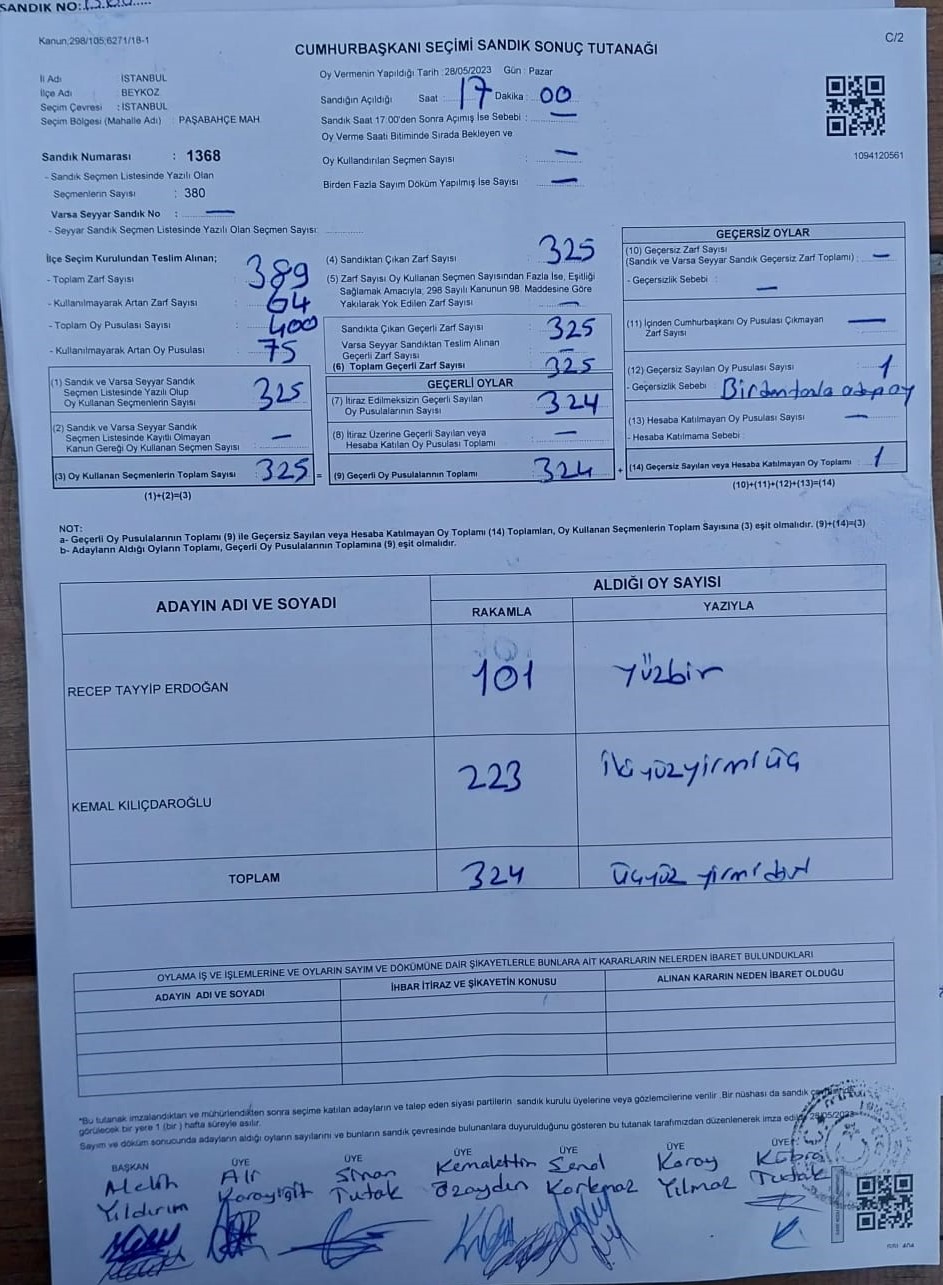 SANDIK NO:
Kanun:298/105;6271/18-1
C/2
CUMHURBAŞKANI SEÇİMİ SANDIK SONUÇ TUTANAĞI
İl Adı : İSTANBUL
İlçe Adı : BEYKOZ
Seçim Çevresi : İSTANBUL
Seçim Bölgesi (Mahalle Adı) : PAŞABAHÇE MAH.
Oy Vermenin Yapıldığı Tarih : 28/05/2023 Gün : Pazar
Sandığın Açıldığı Saat : 17 Dakika : 00
Sandık Saat 17:00'den Sonra Açımış İse Sebebi : —
Oy Verme Saati Bitiminde Sırada Bekleyen ve
Oy Kullandırılan Seçmen Sayısı : —
Birden Fazla Sayım Döküm Yapılmış İse Sayısı : —
1094120561
Sandık Numarası : 1368
- Sandık Seçmen Listesinde Yazılı Olan
Seçmenlerin Sayısı : 380
Varsa Seyyar Sandık No : —
- Seyyar Sandık Seçmen Listesinde Yazılı Olan Seçmen Sayısı:
İlçe Seçim Kurulundan Teslim Alınan;
- Toplam Zarf Sayısı : 389
- Kullanılmayarak Artan Zarf Sayısı : 64
- Toplam Oy Pusulası Sayısı : 400
- Kullanılmayarak Artan Oy Pusulası : 75
(1) Sandık ve Varsa Seyyar Sandık
Seçmen Listesinde Yazılı Olup
Oy Kullanan Seçmenlerin Sayısı : 325
(2) Sandık ve Varsa Seyyar Sandık
Seçmen Listesinde Kayıtlı Olmayan
Kanun Gereği Oy Kullanan Seçmen Sayısı : —
(3) Oy Kullanan Seçmenlerin Toplam Sayısı : 325 =
(1)+(2)=(3)
(4) Sandıktan Çıkan Zarf Sayısı : 325
(5) Zarf Sayısı Oy Kullanan Seçmen Sayısından Fazla İse, Eşitliği
Sağlamak Amacıyla, 298 Sayılı Kanunun 98. Maddesine Göre
Yakılarak Yok Edilen Zarf Sayısı : —
Sandıkta Çıkan Geçerli Zarf Sayısı : 325
Varsa Seyyar Sandıktan Teslim Alınan
Geçerli Zarf Sayısı : —
(6) Toplam Geçerli Zarf Sayısı : 325
GEÇERLİ OYLAR
(7) İtiraz Edilmeksizin Geçerli Sayılan
Oy Pusulalarının Sayısı : 324
(8) İtiraz Üzerine Geçerli Sayılan veya
Hesaba Katılan Oy Pusulası Toplamı : —
(9) Geçerli Oy Pusulalarının Toplamı : 324 +
GEÇERSİZ OYLAR
(10) Geçersiz Zarf Sayısı
(Sandık ve Varsa Seyyar Sandık Geçersiz Zarf Toplamı) : —
- Geçersizlik Sebebi : —
(11) İçinden Cumhurbaşkanı Oy Pusulası Çıkmayan
Zarf Sayısı —
(12) Geçersiz Sayılan Oy Pusulası Sayısı : 1
- Geçersizlik Sebebi : Birden fazla
(13) Hesaba Katılmayan Oy Pusulası Sayısı : —
- Hesaba Katılmama Sebebi :
(14) Geçersiz Sayılan veya Hesaba Katılmayan Oy Toplamı : 1
(10)+(11)+(12)+(13)=(14)
NOT:
a- Geçerli Oy Pusulalarının Toplamı (9) ile Geçersiz Sayılan veya Hesaba Katılmayan Oy Toplamı (14) Toplamları, Oy Kullanan Seçmenlerin Toplam Sayısına (3) eşit olmalıdır. (9)+(14)=(3)
b- Adayların Aldığı Oyların Toplamı, Geçerli Oy Pusulalarının Toplamına (9) eşit olmalıdır.
ADAYIN ADI VE SOYADI
ALDIĞI OY SAYISI
RAKAMLA YAZIYLA
RECEP TAYYİP ERDOĞAN 101 Yüzbir
KEMAL KILIÇDAROĞLU 223 ikiyüzyirmiüç
TOPLAM 324 üçyüz yirmi dört
OYLAMA İŞ VE İŞLEMLERİNE VE OYLARIN SAYIM VE DÖKÜMÜNE DAİR ŞİKAYETLERLE BUNLARA AİT KARARLARIN NELERDEN İBARET BULUNDUKLARI
ADAYIN ADI VE SOYADI İHBAR İTİRAZ VE ŞİKAYETİN KONUSU ALINAN KARARIN NEDEN İBARET OLDUĞU
*Bu tutanak imzalandıktan ve mühürlendikten sonra seçime katılan adayların ve talep eden siyasi partilerin sandık kurulu üyelerine veya gözlemcilerine verilir. Bir nüshası da sandık
görülecek bir yere 1 (bir ) hafta süreyle asılır.
Sayım ve döküm sonucunda adayların aldığı oyların sayılarını ve bunların sandık çevresinde bulunanlara duyurulduğunu gösteren bu tutanak tarafımızdan düzenlenerek imza edildi. 28/05/2023
BAŞKAN ÜYE ÜYE ÜYE ÜYE ÜYE ÜYE
Melih Ali Sinan Kemalettin Şenol Koray Kübra
Yıldırım Karayiğit Tutak Özaydın Korkmaz Yılmaz Tutak